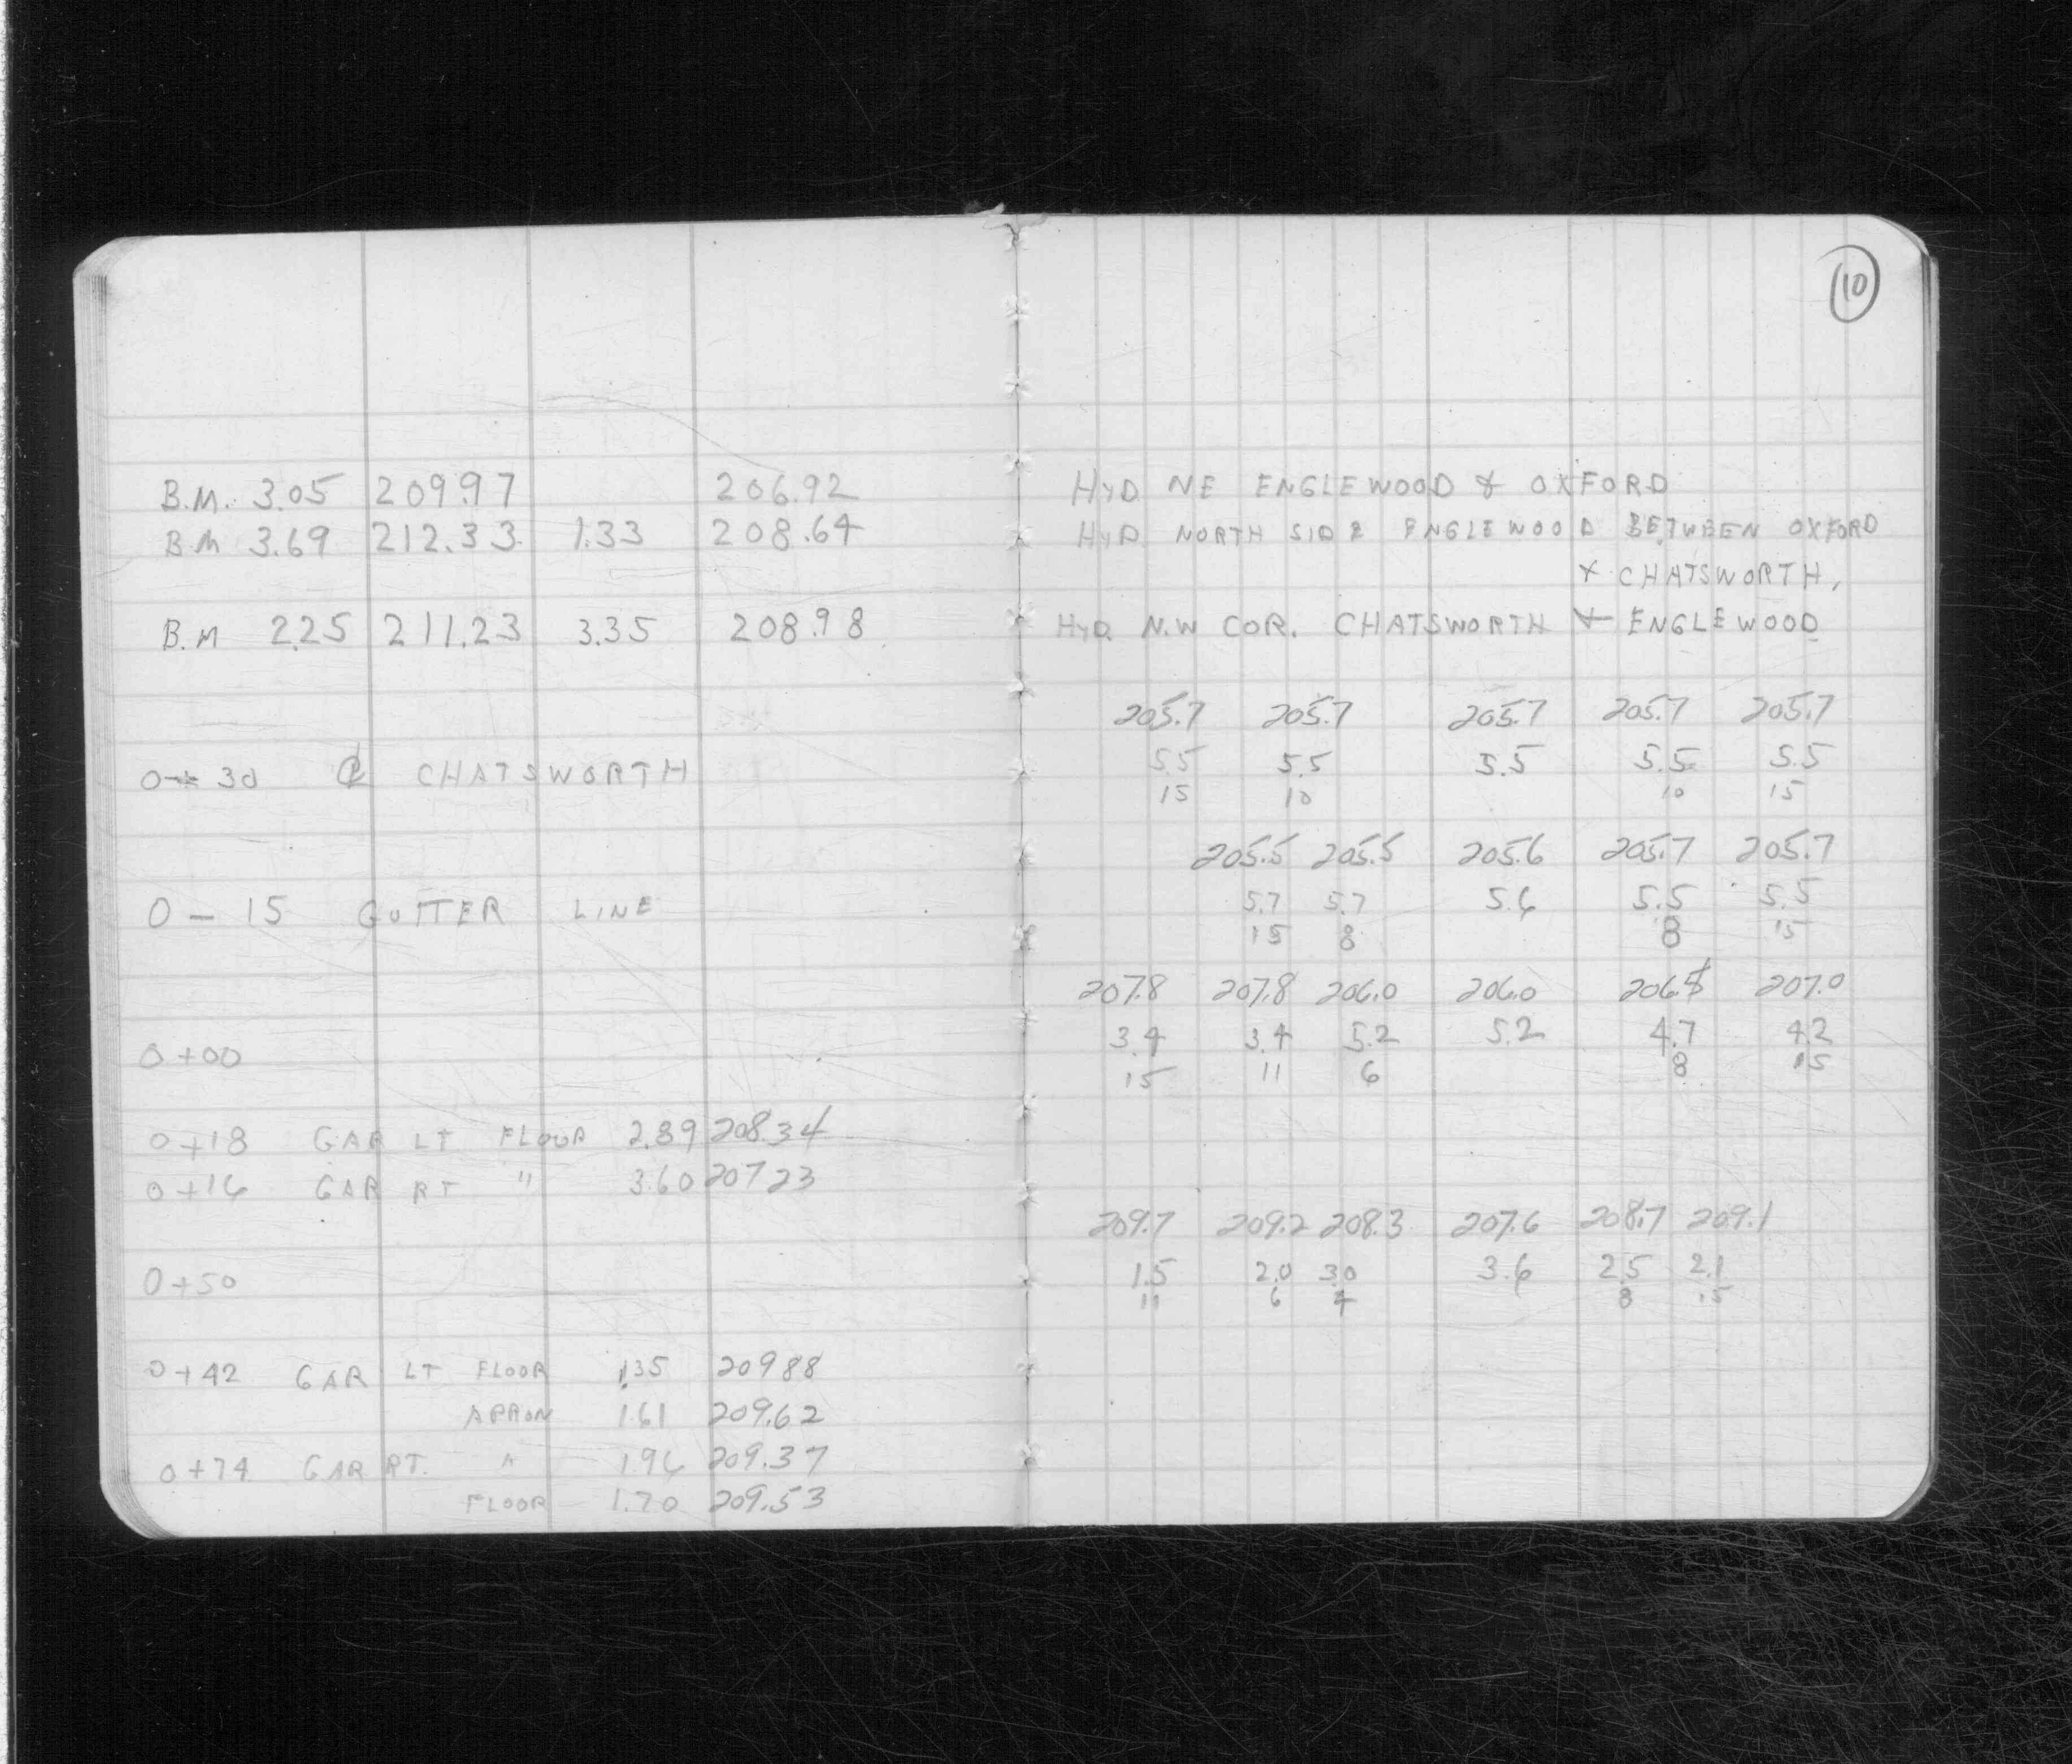 10
B.M. 3.05 209.97 206.92
B.M 3.69 212.33 1.33 208.64
B.M 2.25 211.23 3.35 208.98
0-30 ℄ CHATSWORTH
0-15 GUTTER LINE
0+00
0+18 GAR LT FLOOR 2.89 208.34
0+16 GAR RT " 3.60 207 23
0+50
0+42 GAR LT FLOOR 1.35 209 88
APRON 1.61 209.62
0+74 GAR RT. " 1.96 209.37
FLOOR 1.70 209.53
HYD NE ENGLEWOOD & OXFORD
HYD NORTH SIDE ENGLEWOOD BETWEEN OXFORD
& CHATSWORTH,
HYD. N.W COR. CHATSWORTH & ENGLEWOOD
205.7 205.7 205.7 205.7 205.7
5.5 5.5 5.5 5.5 5.5
15 10 10 15
205.5 205.5 205.6 205.7 205.7
5.7 5.7 5.6 5.5 5.5
15 8 8 15
207.8 207.8 206.0 206.0 206.5 207.0
3.4 3.4 5.2 5.2 4.7 4.2
15 11 6 8 15
209.7 209.2 208.3 207.6 208.7 209.1
1.5 2.0 3.0 3.6 2.5 2.1
11 6 4 8 15